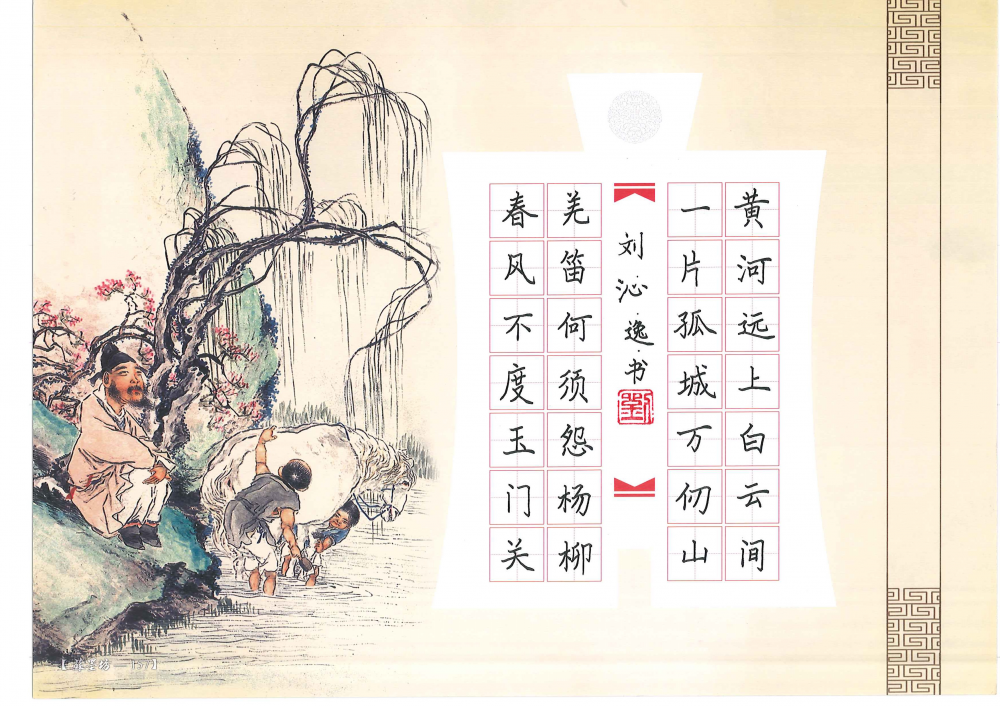 黄河远上白云间
一片孤城万仞山
刘沁逸书
劉
羌笛何须怨杨柳
春风不度玉门关